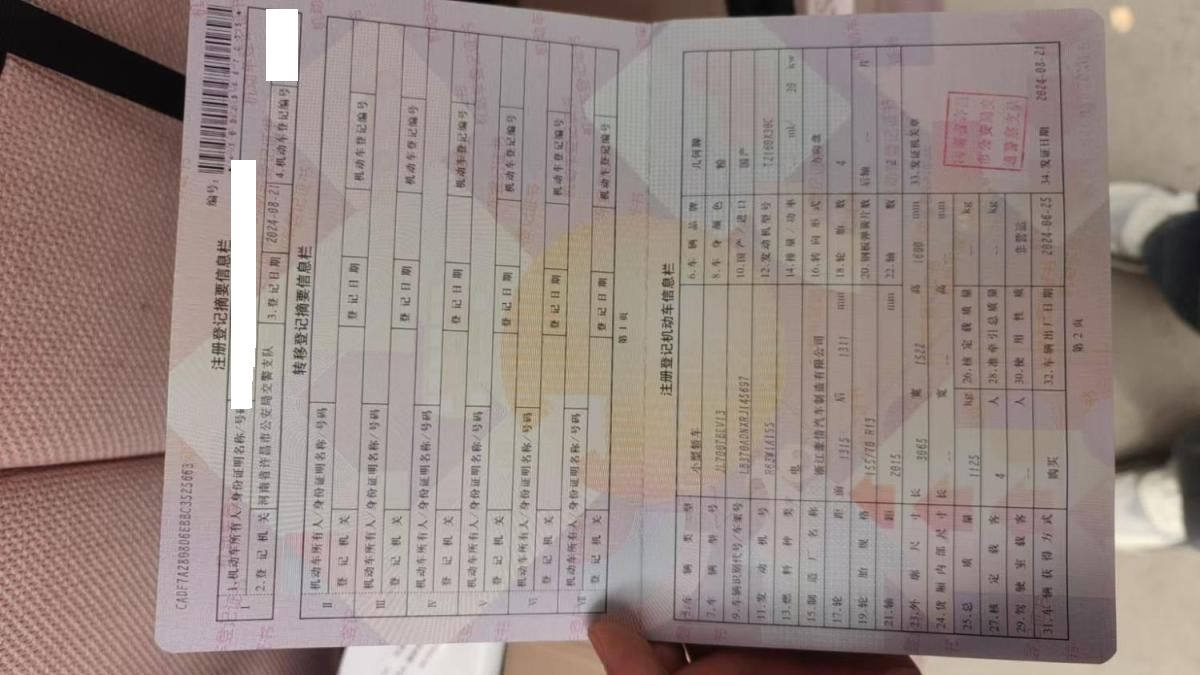 CADF7A2808D6EBBC3525663
编号:
注册登记摘要信息栏
I
1.机动车所有人/身份证明名称/号码
2.登记机关 河南省许昌市公安局交警支队 3.登记日期 2024-08-21 4.机动车登记编号
转移登记摘要信息栏
II 机动车所有人/身份证明名称/号码
登记机关 登记日期 机动车登记编号
III 机动车所有人/身份证明名称/号码
登记机关 登记日期 机动车登记编号
IV 机动车所有人/身份证明名称/号码
登记机关 登记日期 机动车登记编号
V 机动车所有人/身份证明名称/号码
登记机关 登记日期 机动车登记编号
VI 机动车所有人/身份证明名称/号码
登记机关 登记日期 机动车登记编号
VII 机动车所有人/身份证明名称/号码
登记机关 登记日期 机动车登记编号
第1页
注册登记机动车信息栏
5.车辆类型 小型轿车 6.车辆品牌 几何牌
7.车辆型号 JL7001BEV13 8.车身颜色 粉
9.车辆识别代号/车架号 LB370ADNXRJ145697 10.国产/进口 国产
11.发动机号 12.发动机型号 TZ160X30C
13.燃料种类 电 14.排量/功率 -- ml/ 20 kw
15.制造厂名称 浙江豪情汽车制造有限公司 16.转向形式 方向盘
17.轮距 前 1315 后 1311 mm 18.轮胎数 4
19.轮胎规格 155/70 R13 20.钢板弹簧片数 后轴 片
21.轴距 2015 mm 22.轴数 2
23.外廓尺寸 长 3065 宽 1522 高 1600 mm 33.发证机关章
24.货厢内部尺寸 长 -- 宽 -- 高 -- mm
25.总质量 1125 kg 26.核定载质量 -- kg
27.核定载客 4 人 28.准牵引总质量 -- kg
29.驾驶室载客 -- 人 30.使用性质 非营运
31.车辆获得方式 购买 32.车辆出厂日期 2024-06-25 34.发证日期 2024-08-21
河南省许昌
市公安局交
通警察支队
第2页